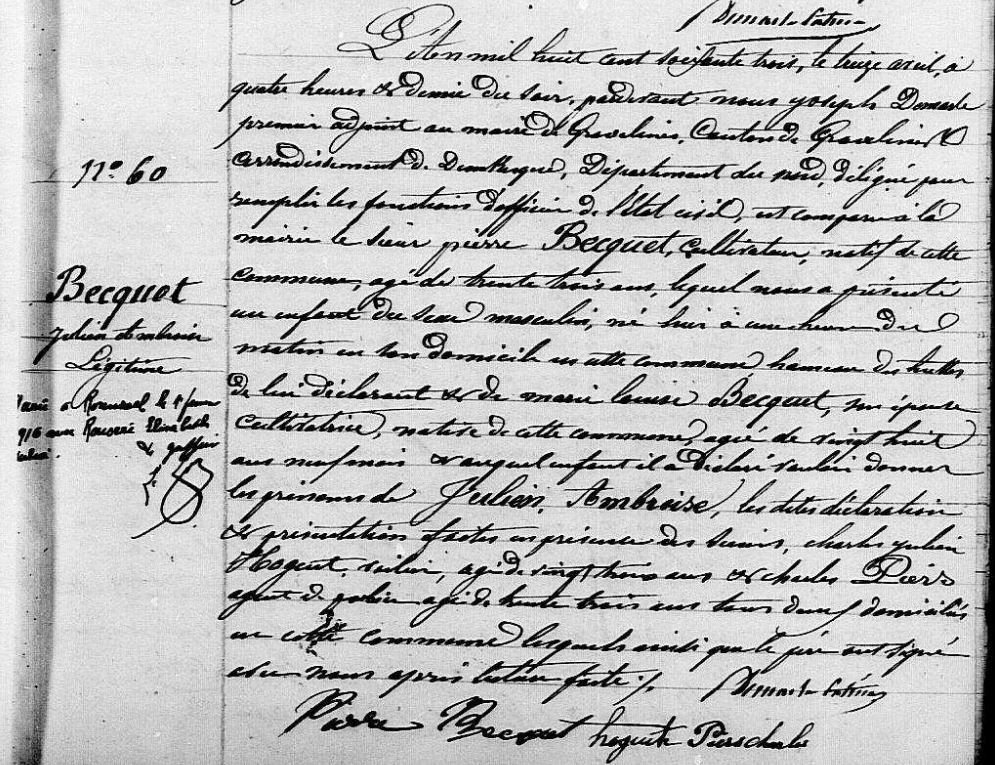 L'An mil huit cent soixante trois, le treize avril, à
quatre heures & demie du soir, pardevant nous joseph Demarle
premier adjoint au maire de Gravelines, Canton de Gravelines
arrondissement de Dunkerque, Département du nord, délégué pour
remplir les fonctions d'officier de l'Etat civil, est comparu à la
n° 60
mairie le sieur pierre Becquet, cultivateur, natif de cette
commune, agé de trente trois ans, lequel nous a présenté
Becquet
un enfant du sexe masculin, né hier à une heure du
julien Ambroise
matin en son domicile en cette commune hameau des huttes
Légitime
de lui déclarant & de marie louise Becquet, son épouse
marié à le
avec Elisabeth
cultivatrice, native de cette commune, agée de vingt huit
ans neuf mois & auquel enfant il a déclaré vouloir donner
les prénoms de Julien, Ambroise, les dites déclaration
& présentation faites en présence des sieurs, charles julien
agé de vingt trois ans & charles Piers
agent de police agé de trente trois ans tous deux domiciliés
en cette commune lesquels ainsi que le père ont signé
avec nous après lecture faite ./.
Pierre Becquet Piers charles